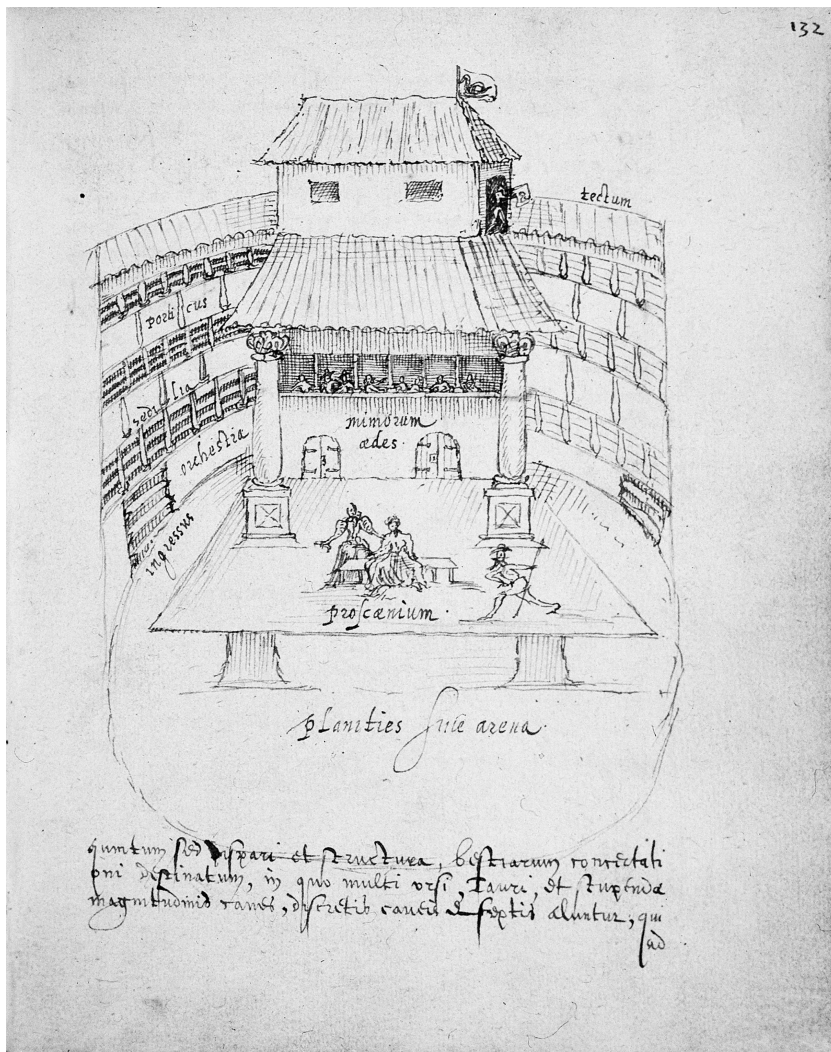 132
tectum
porticus
sedilia
orchestra
ingressus
mimorum
ædes.
proscænium.
planities siue arena.
quintum sed dispari et structura, bestiarum concertati
oni destinatum, in quo multi vrsi, Tauri, et stupendæ
magnitudinis canes, discretis caueis & septis aluntur, qui
ad